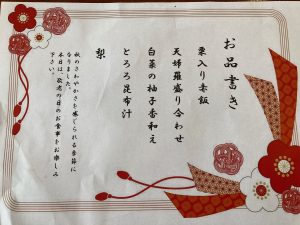 お品書き
栗入り赤飯
天婦羅盛り合わせ
白菜の柚子香和え
とろろ昆布汁
梨
秋のさわやかさを感じられる季節に
なりました。
本日は、敬老の日のお食事をお楽しみ
下さい。